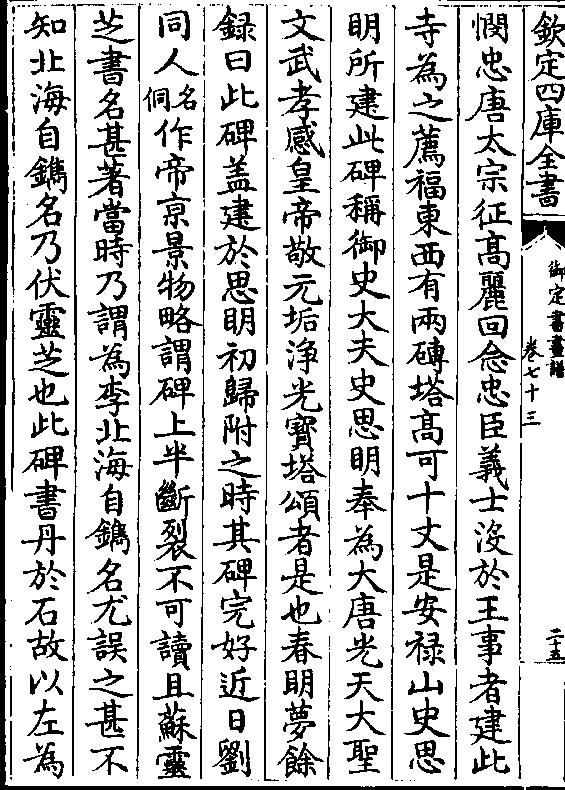 欽定四庫全書
御定書畫譜
卷七十三
二十五
憫忠唐太宗征高麗回念忠臣義士沒於王事者建此
寺為之薦福東西有兩磚塔高可十丈是安禄山史思
明所建此碑稱御史大夫史思明奉為大唐光天大聖
文武孝感皇帝敬元垢浄光寳塔頌者是也春明夢餘
録曰此碑盖建於思明初歸附之時其碑完好近日劉
同人名侗作帝京景物略謂碑上半斷裂不可讀且蘇靈
芝書名甚著當時乃謂為李北海自鐫名尤誤之甚不
知北海自鐫名乃伏靈芝也此碑書丹於石故以左為